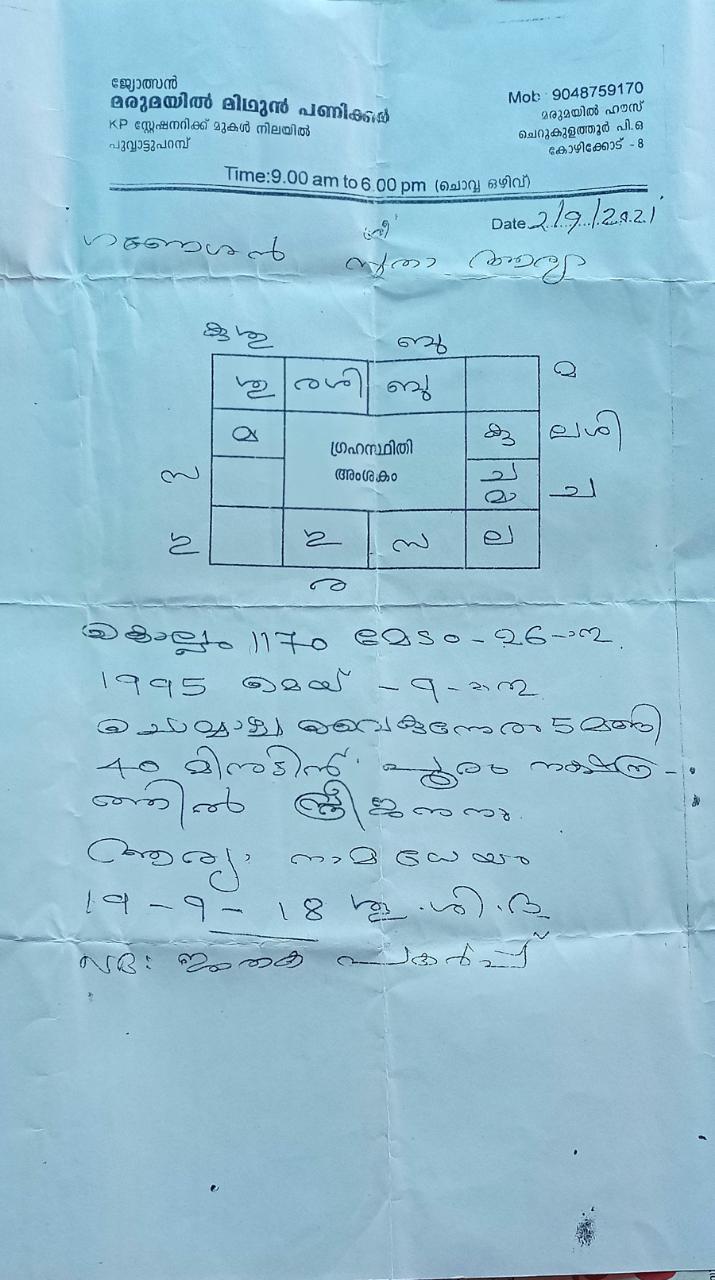 ജ്യോത്സൻ
മരുമയിൽ മിഥുൻ പണിക്കർ
KP സ്റ്റേഷനറിക്ക് മുകൾ നിലയിൽ
പൂവ്വാട്ടുപറമ്പ്
Mob: 9048759170
മരുമയിൽ ഹൗസ്
ചെറുകുളത്തൂർ പി.ഒ
കോഴിക്കോട് - 8
Time:9.00 am to 6.00 pm (ചൊവ്വ ഒഴിവ്)
Date 2/9/2021
ശ്രീ
ഗണേശൻ സുതാ ആര്യ
കുശു ബു
ശു രശി ബു മ
മ ഗ്രഹസ്ഥിതി കു ലശി
സ അംശകം ച
മാ ച
ഗു ഗു സ ല
ര
കൊല്ലം 1170 മേടം - 26-ാനു
1995 മെയ് - 9-ാനു
ചൊവ്വാഴ്ച വൈകുന്നേരം 5 മണി
40 മിനുട്ടിന് പൂരം നക്ഷത്ര-
ത്തിൽ സ്ത്രീ ജനനം
ആര്യ നാമധേയം
19 - 9 - 18 ശു.ശി.ദ
NB: ജാതക പകർപ്പ്